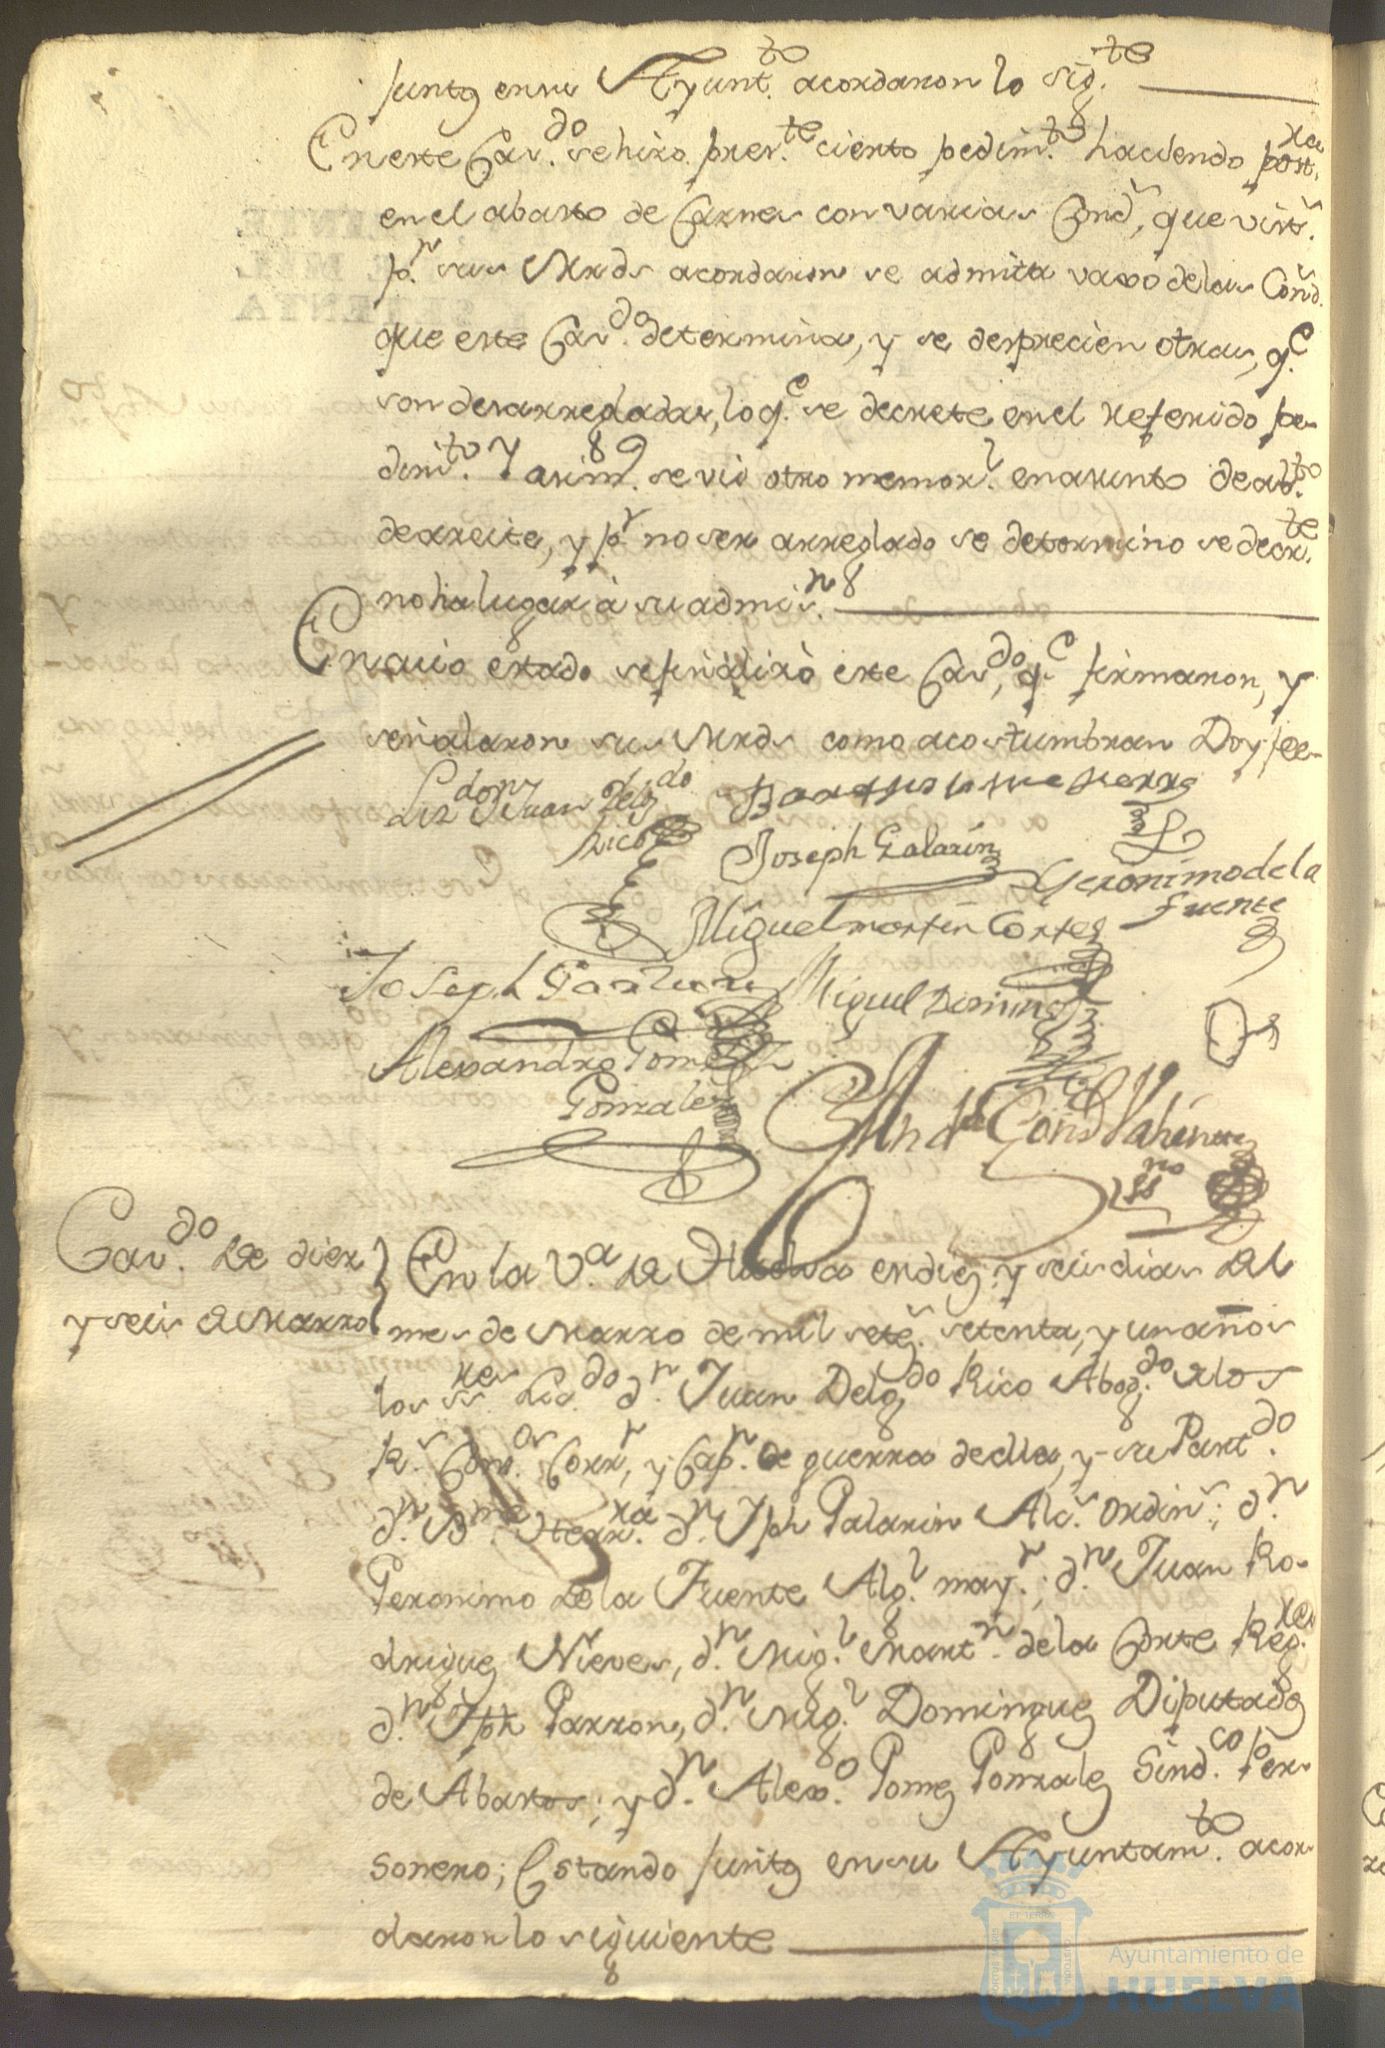 juntos en su Ayunt.to acordaron lo sig.te
En este Cav.do se hizo pres.te cierto pedim.to haciendo post.ra
en el abasto de Carnes con varias Cond.s, que vist.s
p.r sus Mrds acordaron se admita vaxo de las Cond.s
que este Cav.do determina, y se desprecien otras, q.e
son desarregladas, lo q.e se decrete en el referido pe-
dim.to Y asim.o se vio otro memor.l en asunto de ab.to
de azeite, y p.r no ser arreglado se determino se decr.te
no ha lugar à su admis.n
En cuio estado se finalizò este Cav.do, q.e firmaron, y
señalaron sus Mrds como acostumbran Doy fee-
Liz.do don Juan Delg.do
Rico
Joseph Galazin
Geronimo de la
Fuente
Miguel martin Cortes
Joseph Garzon
Miguel Domingz
Alexandro Gomez
Gonzalez
ss.no
Cav.do de diez
y seis de Marzo
En la V.a de Huelva en diez y seis dias del
mes de Marzo de mil sete.s setenta, y un años
los ss.res Lic.do d.n Juan Delg.do Rico Abog.do de los
R.s Cons.os Corr.r, y Cap.n de guerra de ella, y su Part.do
d.n B.me Sierra d.n Jph Galazin Alc.s Ordin.s; d.n
Geronimo de la Fuente Alg.l may.r; d.n Juan Ro-
driguez Nieves, d.n Mig.l Mart.n de la Corte Reg.res
d.n Jph Garzon, d.n Mig.l Dominguez Diputados
de Abastos; y d.n Alex.o Gomez Gonzalez Sind.co Per-
sonero; Estando juntos en su Ayuntam.to acor-
daron lo siguiente
Ayuntamiento de
HUELVA